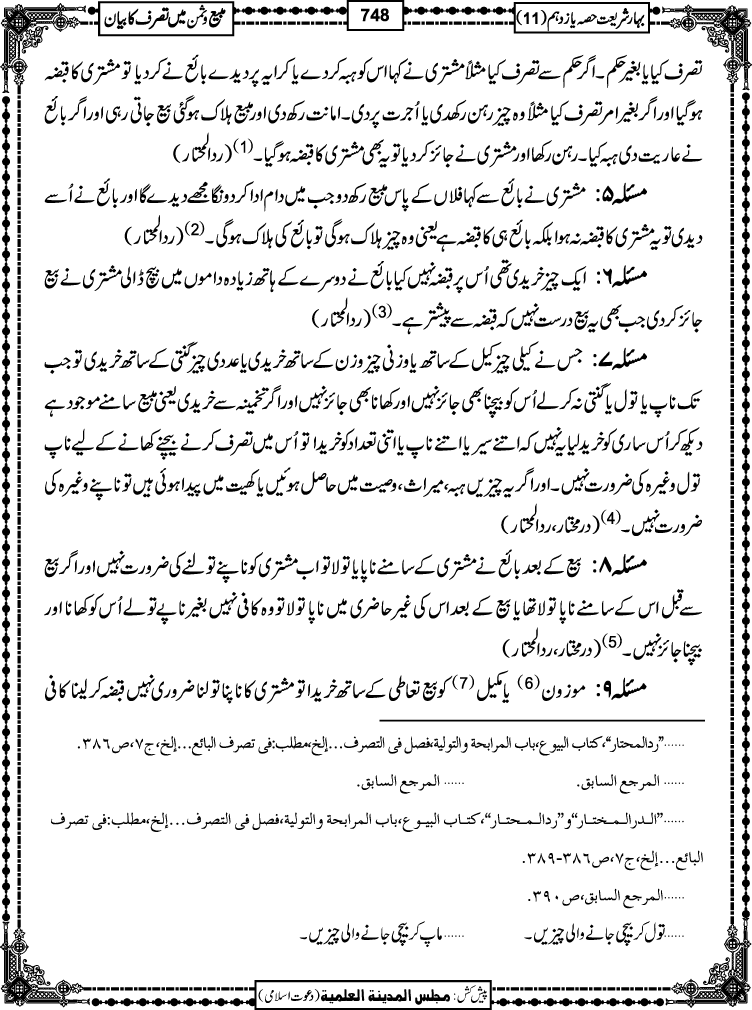 بہارِ شریعت حصہ یازدہم (11)
748
مبیع و ثمن میں تصرف کا بیان
تصرف کیا یا بغیر حکم۔ اگر حکم سے تصرف کیا مثلاً مشتری نے کہا اس کو ہبہ کردے یا کرایہ پر دیدے بائع نے کردیا تو مشتری کا قبضہ
ہوگیا اور اگر بغیر امر تصرف کیا مثلاً وہ چیز رہن رکھدی یا اُجرت پر دی۔ امانت رکھ دی اور مبیع ہلاک ہوگئی بیع جاتی رہی اور اگر بائع
نے عاریت دی ہبہ کیا۔ رہن رکھا اور مشتری نے جائز کردیا تو یہ بھی مشتری کا قبضہ ہوگیا۔(1) (ردالمحتار)
مسئلہ ۵: مشتری نے بائع سے کہا فلاں کے پاس مبیع رکھ دو جب میں دام ادا کردونگا مجھے دیدے گا اور بائع نے اُسے
دیدی تو یہ مشتری کا قبضہ نہ ہوا بلکہ بائع ہی کا قبضہ ہے یعنی وہ چیز ہلاک ہوگی تو بائع کی ہلاک ہوگی۔(2) (ردالمحتار)
مسئلہ ۶: ایک چیز خریدی تھی اُس پر قبضہ نہیں کیا بائع نے دوسرے کے ہاتھ زیادہ داموں میں بیچ ڈالی مشتری نے بیع
جائز کردی جب بھی یہ بیع درست نہیں کہ قبضہ سے پیشتر ہے۔(3) (ردالمحتار)
مسئلہ ۷: جس نے کیلی چیز کیل کے ساتھ یا وزنی چیز وزن کے ساتھ خریدی یا عددی چیز گنتی کے ساتھ خریدی تو جب
تک ناپ یا تول یا گنتی نہ کرلے اُس کو بیچنا بھی جائز نہیں اور کھانا بھی جائز نہیں اور اگر تخمینہ سے خریدی یعنی مبیع سامنے موجود ہے
دیکھ کر اُس ساری کو خرید لیا یہ نہیں کہ اتنے سیر یا اتنے ناپ یا اتنی تعداد کو خریدا تو اُس میں تصرف کرنے بیچنے کھانے کے لیے ناپ
تول وغیرہ کی ضرورت نہیں۔ اور اگر یہ چیزیں ہبہ، میراث، وصیت میں حاصل ہوئیں یا کھیت میں پیدا ہوئی ہیں تو ناپنے وغیرہ کی
ضرورت نہیں۔(4) (درمختار، ردالمحتار)
مسئلہ ۸: بیع کے بعد بائع نے مشتری کے سامنے ناپا یا تولا تو اب مشتری کو ناپنے تولنے کی ضرورت نہیں اور اگر بیع
سے قبل اس کے سامنے ناپا تولا تھا یا بیع کے بعد اس کی غیر حاضری میں ناپا تولا تو وہ کافی نہیں بغیر ناپے تولے اُس کو کھانا اور
بیچنا جائز نہیں۔(5) (درمختار، ردالمحتار)
مسئلہ ۹: موزون(6) یا مکیل(7) کو بیع تعاطی کے ساتھ خریدا تو مشتری کا ناپنا تولنا ضروری نہیں قبضہ کرلینا کافی
......”ردالمحتار“، کتاب البیوع، باب المرابحة والتولیة، فصل فی التصرف...إلخ، مطلب: فی تصرف البائع...إلخ، ج۷، ص۳۸۶.
......المرجع السابق. ......المرجع السابق.
......”الدرالمختار“ و”ردالمحتار“، کتاب البیوع، باب المرابحة والتولیة، فصل فی التصرف...إلخ، مطلب: فی تصرف
البائع...إلخ، ج۷، ص۳۸۶-۳۸۹.
......المرجع السابق، ص۳۹۰.
......تول کر بیچی جانے والی چیزیں۔ ......ماپ کر بیچی جانے والی چیزیں۔
پیش کش: مجلس المدینة العلمیة (دعوت اسلامی)